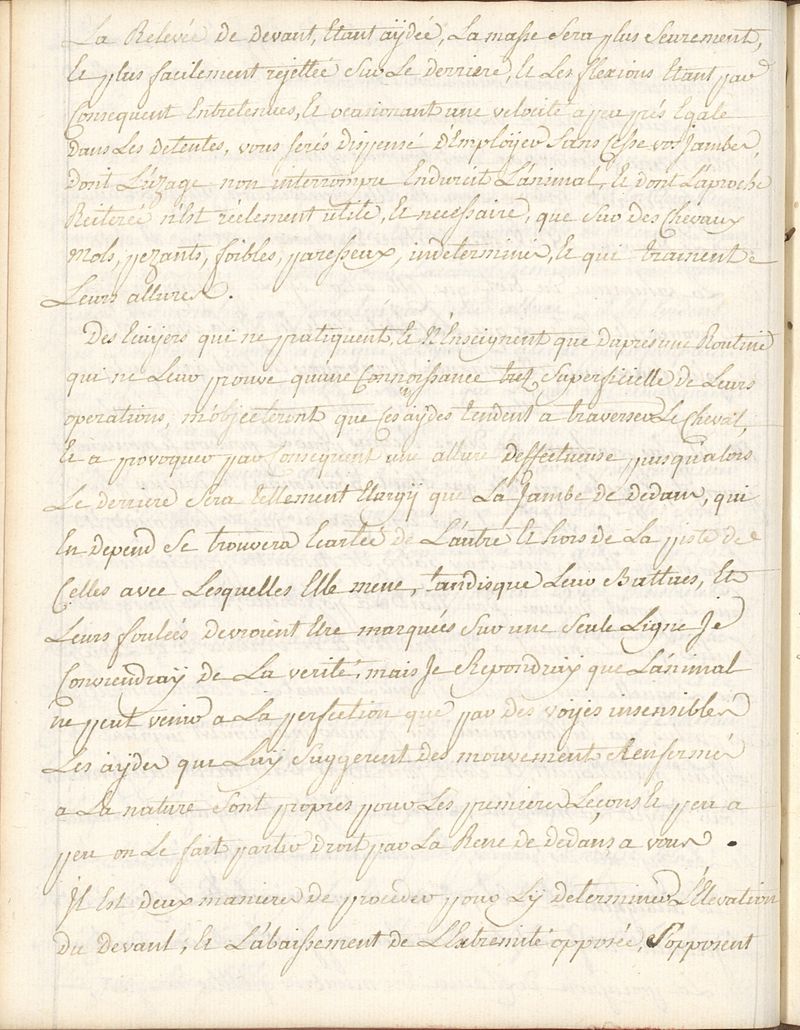 La Relevée de devant, Etant aÿdée, La masse Sera plus Seurement,
Et plus facilement rejettée Sur Le derriere, Et Les flexions Etant par
Consequent Entretenues, Et ocasionant une velocité a peu prés Egale
dans Les detentes, vous serés dispensé d'Emploÿer Sans Cesse vos Jambes,
dont L'uzage non interrompu Endurcit L'animal, Et dont L'aproche
Reiterée n'Est réelement utile, Et necessaire, que Sur des Chevaux
mols, pezants, foibles, paresseux, indeterminés, Et qui trainent
Leurs allures.
Des Ecuÿers qui ne pratiquent, Et N'Enseignent que d'aprés une Routine
qui ne Leur prouve qu'une Connoissance trez Superficielle de Leurs
operations, m'objecteront que Ces aÿdes tendent a traverser Le Cheval,
Et a provoquer par Consequent une allure deffectueuse, puisqu'alors
Le derriere Sera tellement Elargÿ que La Jambe de dedans, qui
En depend Se trouvera Ecartée de L'autre Et hors de La piste de
Celles avec Lesquelles Elle mene, tandisque Leurs Battues, Et
Leurs foulées devroient Etre marquées Sur une Seule Ligne Je
Conviendraÿ de La verité, mais Je Repondraÿ que L'animal
ne peut venir a La perfection que par des voÿes insensibles
Les aÿdes que Luÿ Suggerent des mouvements Renfermés
a La nature Sont propres pour Les premieres Leçons Et peu a
peu on Le fait partir droit par La Rene de dedans a vous.
Il Est deux manieres de proceder pour L'ÿ determiner L'Elevation
du devant, Et L'abaissement de L'Extremité opposée, S'opposent